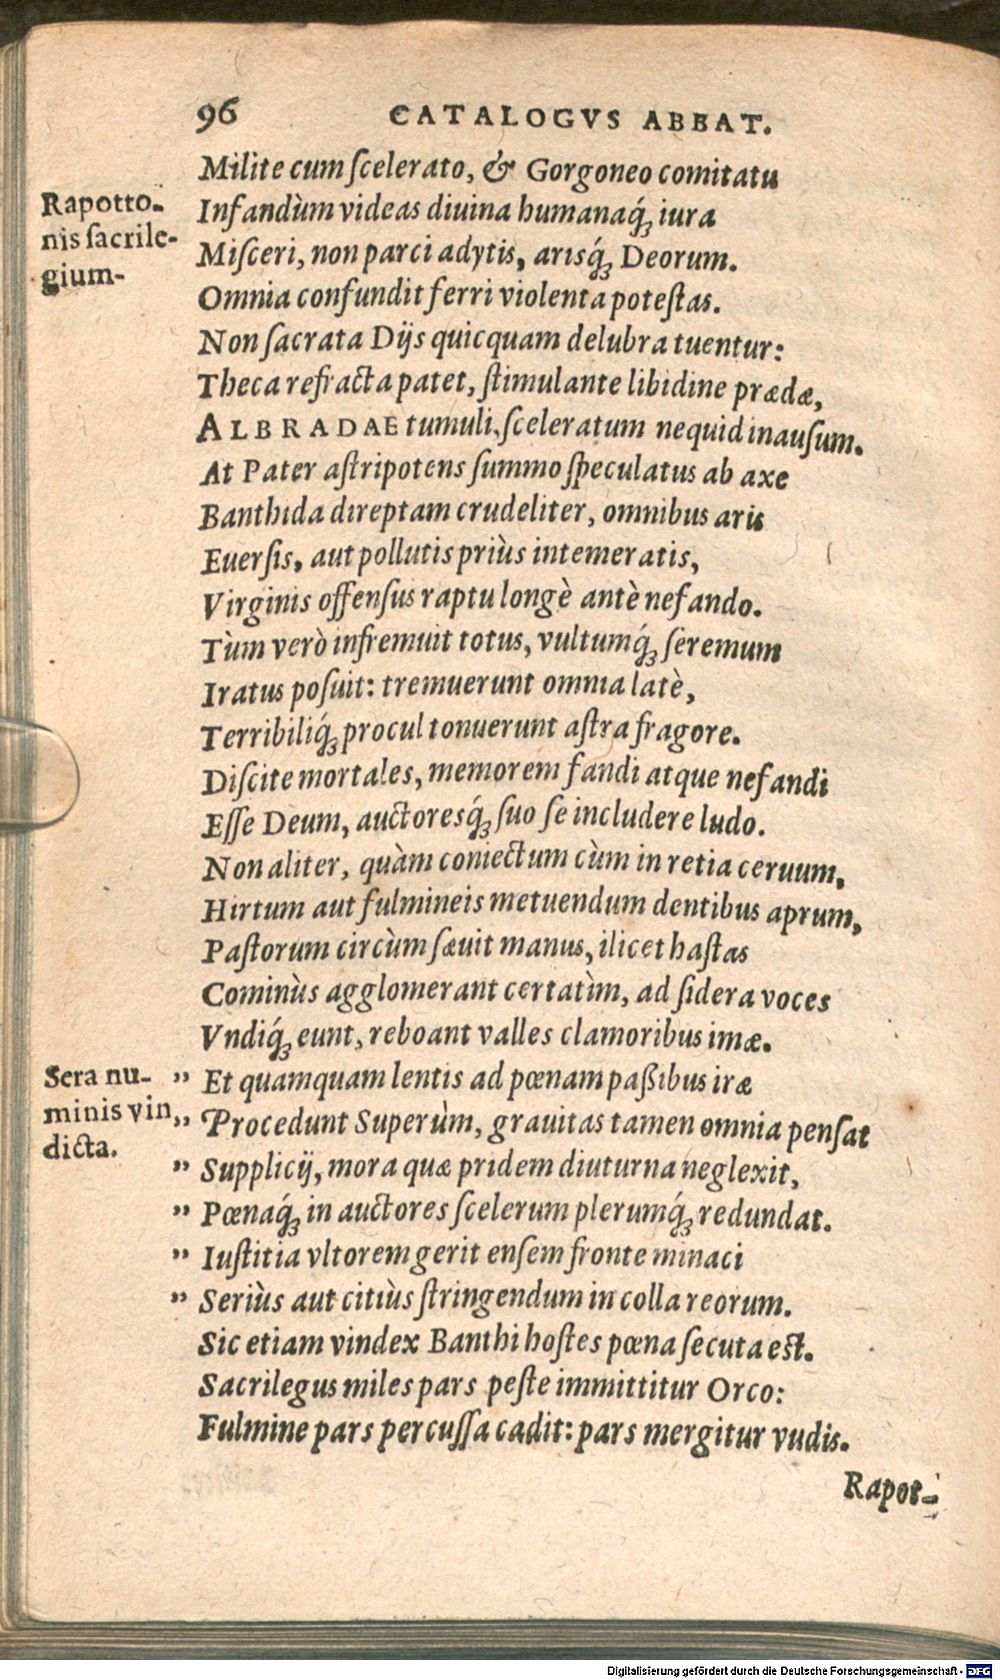 96 CATALOGVS ABBAT.
Milite cum ſcelerato, & Gorgoneo comitatu
Rapotto-
nis ſacrile-
gium-
Infandùm videas diuina humanaq́; iura
Miſceri, non parci adytis, arisq́; Deorum.
Omnia confundit ferri violenta poteſtas.
Non ſacrata Dijs quicquam delubra tuentur:
Theca refracta patet, ſtimulante libidine prædæ,
ALBRADAE tumuli, ſceleratum nequid inauſum.
At Pater aſtripotens ſummo ſpeculatus ab axe
Banthida direptam crudeliter, omnibus aris
Euerſis, aut pollutis priùs intemeratis,
Virginis offenſus raptu longè antè nefando.
Tùm verò infremuit totus, vultumq́; ſeremum
Iratus poſuit: tremuerunt omnia latè,
Terribiliq́; procul tonuerunt aſtra fragore.
Diſcite mortales, memorem fandi atque nefandi
Eſſe Deum, auctoresq́; ſuo ſe includere ludo.
Non aliter, quàm coniectum cùm in retia ceruum,
Hirtum aut fulmineis metuendum dentibus aprum,
Paſtorum circùm ſæuit manus, ilicet haſtas
Cominùs agglomerant certatìm, ad ſidera voces
Vndiq́; eunt, reboant valles clamoribus imæ.
Sera nu-
minis vin
dicta.
„ Et quamquam lentis ad pœnam paßibus iræ
„ Procedunt Superùm, grauitas tamen omnia penſat
„ Supplicij, mora quæ pridem diuturna neglexit,
„ Pœnaq́; in auctores ſcelerum plerumq́; redundat.
„ Iuſtitia vltorem gerit enſem fronte minaci
„ Seriùs aut citiùs ſtringendum in colla reorum.
Sic etiam vindex Banthi hoſtes pœna ſecuta eſt.
Sacrilegus miles pars peſte immittitur Orco:
Fulmine pars percuſſa cadit: pars mergitur vudis.
Rapot-
Digitalisierung gefördert durch die Deutsche Forschungsgemeinschaft - DFG